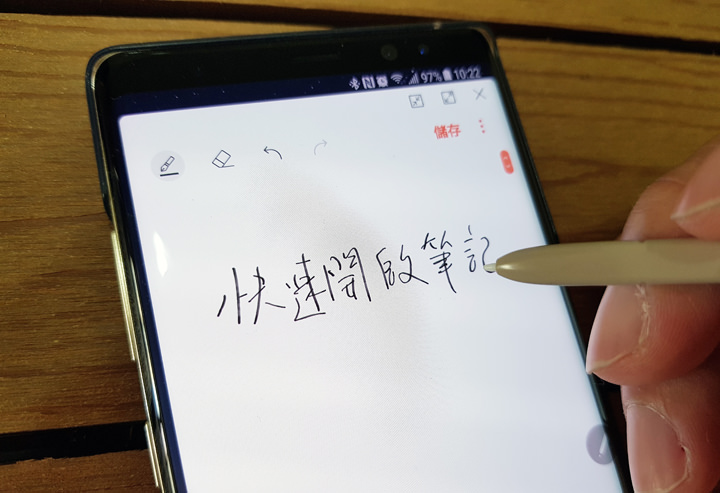 97% 10:22
儲存
快速開啟筆記